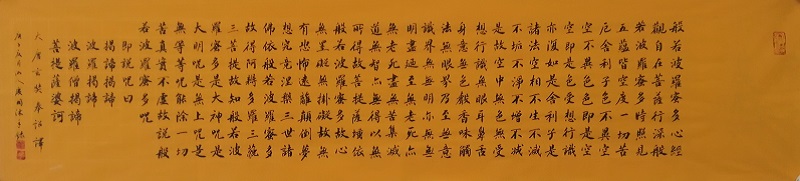 般若波羅蜜多心經
觀自在菩薩行深般
若波羅蜜多時照見
五蘊皆空度一切苦
厄舍利子色不異空
空不異色色即是空
空即是色受想行識
亦復如是舍利子是
諸法空相不生不滅
不垢不淨不增不減
是故空中無色無受
想行識無眼耳鼻舌
身意無色聲香味觸
法無眼界乃至無意
識界無無明亦無無
明盡乃至無老死亦
無老死盡無苦集滅
道無智亦無得以無
所得故菩提薩埵依
般若波羅蜜多故心
無罣礙無掛礙故無
有恐怖遠離顛倒夢
想究竟涅槃三世諸
佛依般若波羅蜜多
故得阿耨多羅三藐
三菩提故知般若波
羅蜜多是大神咒是
大明咒是無上咒是
無等等咒能除一切
苦真實不虛故說般
若波羅蜜多咒
即說咒曰
揭諦揭諦
波羅揭諦
波羅僧揭諦
菩提薩婆訶
大唐玄奘奉詔譯